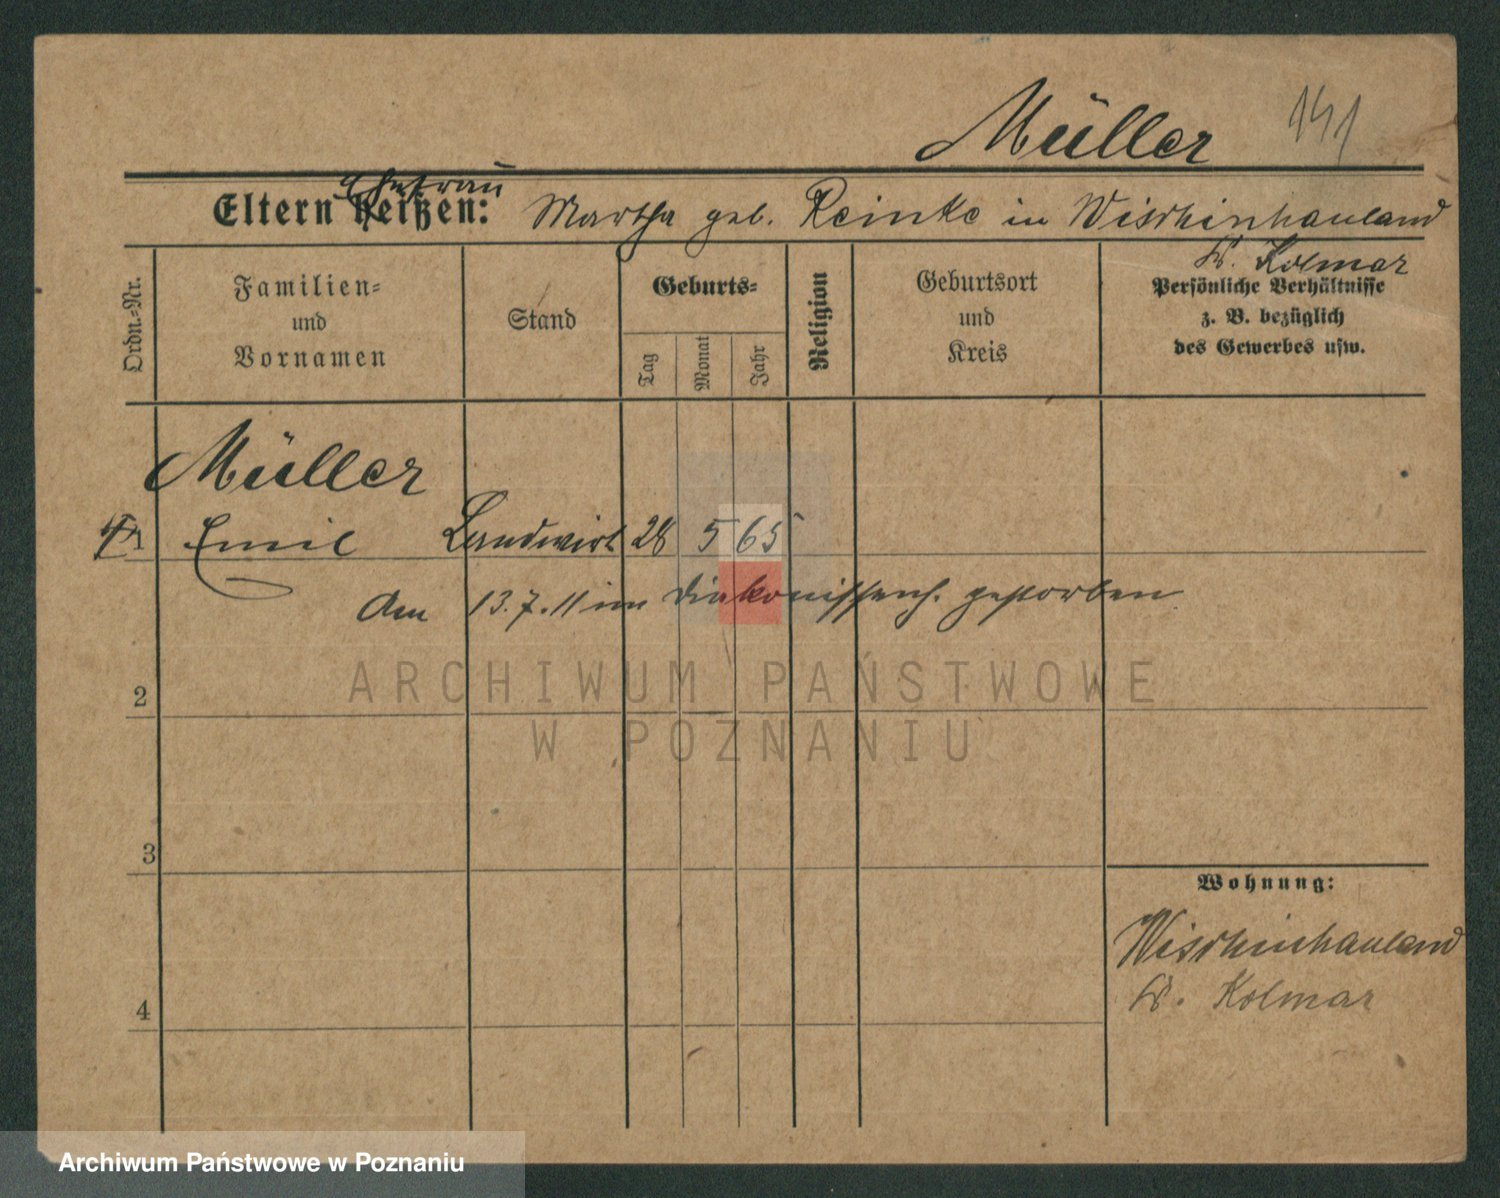 Müller 141
Ehefrau
Eltern heißen: Martha geb. Reinke in Wischinhauland
Kr. Kolmar
Ordn.-Nr.
Familien-
und
Vornamen
Stand
Geburts-
Tag
Monat
Jahr
Religion
Geburtsort
und
Kreis
Persönliche Verhältnisse
z. B. bezüglich
des Gewerbes usw.
Müller
1 Emil Landwirt 28 5 65
Am 13.7.11 im Diakonissenh. gestorben
ARCHIWUM PAŃSTWOWE
W POZNANIU
2
3
4
Wohnung:
Wischinhauland
Kr. Kolmar
Archiwum Państwowe w Poznaniu